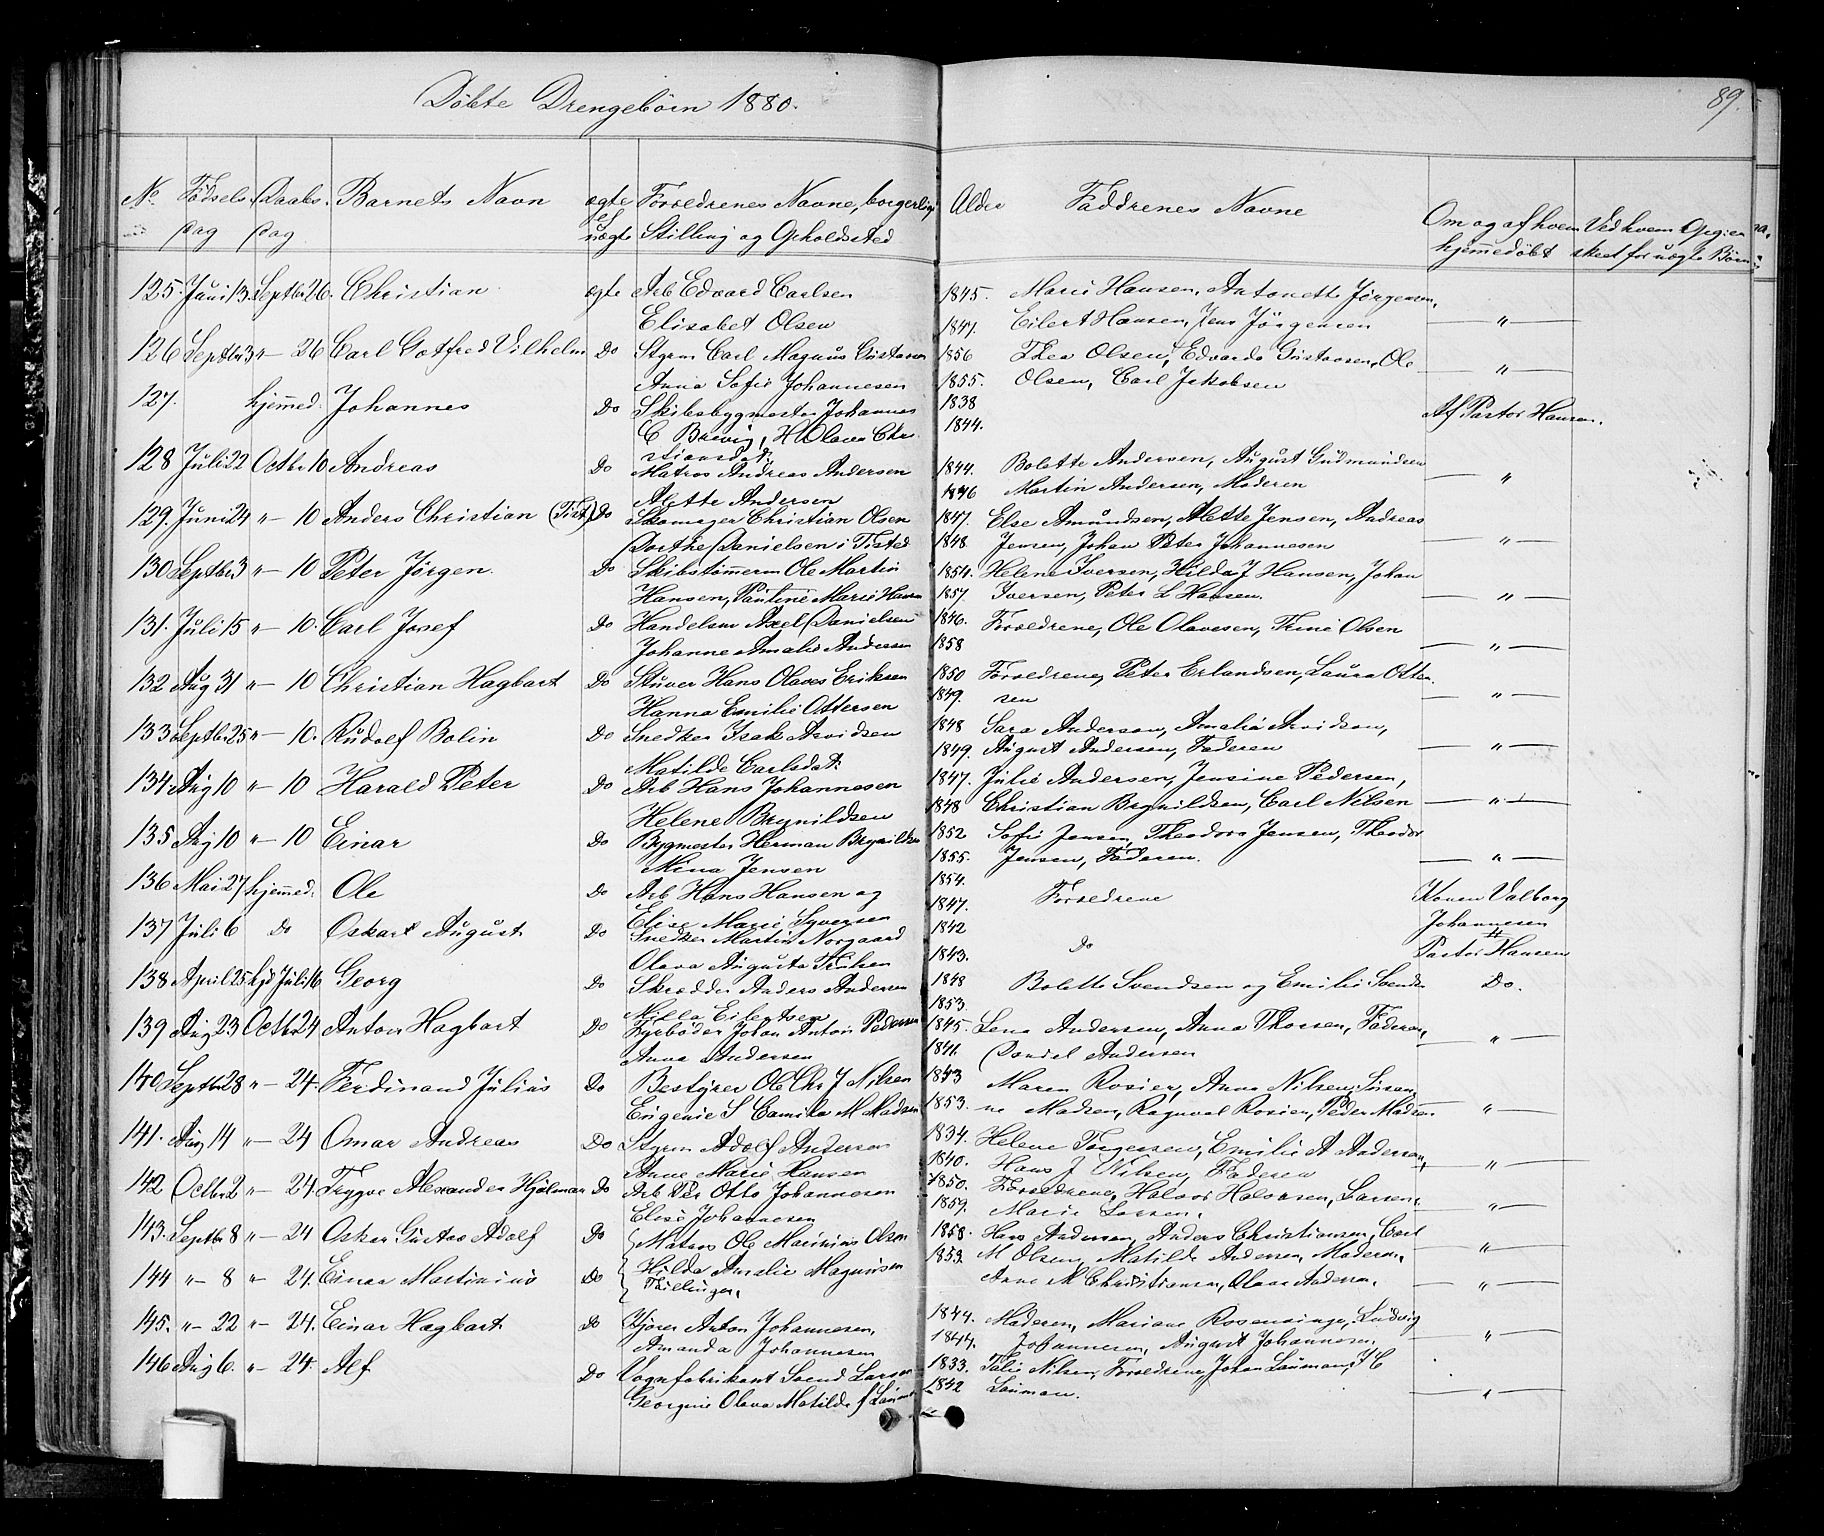 Döbte Drengebörn 1880.
89.
No Födsels Dag Daabs Dag Barnets Navn ægte el uægte Forældrenes Navne, borgerlige Stilling og Opholdssted Alder Faddrenes Navne Om og af hvem hjemmedöbt Ved hvem Opgien skeet for uægte Börn
125. Juni 13. Septbr 26. Christian ægte Arb Edvard Carlsen 1845. Marie Hansen, Antonette Jörgensen,
Elisabet Olsen 1847. Eilert Hansen, Jens Jörgensen — " —
126 Septbr 3 " — 26 Carl Gotfred Vilhelm Do Styrm Carl Magnus Gustavsen 1856 Thea Olsen, Edvarda Gustavsen, Ole
Anna Sofie Johannesen 1855. Olsen, Carl Jakobsen — " —
127. hjemmed. Johannes Do Skibsbygmester Johannes 1838 Af Pastor Hansen.
C Brevig, H Olava Chr 1844.
stiansdat:
128 Juli 22 Octbr 10 Andreas Do Matros Andreas Andersen 1844. Bolette Andersen, August Gudmundsen
Alette Andersen 1846 Martin Andersen, Moderen — " —
129. Juni 24 " — 10 Anders Christian (Tist) Do Skomager Christian Olsen 1847. Else Amundsen, Alette Jensen, Andreas
Dorthe Danielsen i Tisted 1848. Jensen, Johan Peter Johannesen — " —
130 Septbr 3 " — 10 Peter Jörgen. Do Skibstömmerm Ole Martin 1854. Helene Iversen, Hilda J Hansen, Johan
Hansen, Pauline Marie Hansen 1857. Iversen, Peter L Hansen. — " —
131. Juli 15 " — 10. Carl Josef Do Handelsm Axel Danielsen 1846. Forældrene, Ole Olavesen, Trine Olsen
Johanne Amalie Andersen 1858 — " —
132 Aug 31 " — 10 Christian Hagbart Do Stuver Hans Olaves Eriksen 1850 Forældrene, Peter Erlandsen, Laura Otter
Hanna Emilie Ottersen 1849. sen — " —
133 Septbr 25 " — 10. Rudolf Bolin Do Snedker Isak Arvidsen 1848 Sara Andersen, Amalia Arvidsen,
Matilde Carlsdat: 1849. August Andersen, Faderen — " —
134. Aug 10 " — 10 Harald Peter Do Arb Hans Johannesen 1847. Julie Andersen, Jensine Pedersen,
Helene Brynildsen 1848 Christian Brynildsen, Carl Nilsen — " —
135 Aug 10 " — 10 Einar Do Bygmester Herman Brynildsen 1852 Sofie Jensen, Theodora Jensen, Theodor
Mina Jensen 1855. Jensen, Faderen. — " —
136 Mai 27 hjemmed. Ole Do Arb Hans Hansen og 1854. Forældrene Konen Valborg
Elise Marie Syversen 1847. Johannesen
137 Juli 6 Do Oskar August Do Snedker Martin Norgaard 1842 Do Pastor H Hansen
Olava Augusta Trulsen 1843.
138 April 25 hjd Juli 16 Georg Do Skrædder Anders Andersen 1848 Bolette Svendsen og Emilie Svends Do.
Milla Eilertsen 1853
139 Aug 23 Octbr 24 Anton Hagbart Do Fyrböder Johan Anton Pedersen 1845. Lena Andersen, Anna Thorsen, Faderen,
Anna Andersen 1841. Daniel Andersen — " —
140 Septbr 28 " — 24. Ferdinand Julius Do Bestyrer Ole Chr J Nilsen 1843 Maren Rosier, Anna Nilsen, Susan
Eugenie S Camilla M Madsen 1853. ne Madsen, Ragnval Rosien, Peder Madsen — " —
141. Aug 14 " — 24 Omar Andreas Do Styrm Adolf Andersen 1834. Helene Torgersen, Emilie A Andersen,
Anne Marie Hansen 1840. Hans J Nilsen, Faderen — " —
142 Octbr 2 " — 24. Trygve Alexander Hjalmar Do Arb Per Otto Johannesen 1850. Forældrene, Halvor Halvorsen, Larsen,
Elise Johannesen 1859. Marie Larsen. — " —
143. Septbr 8 " — 24 Oskar Gustav Adolf Do Matros Ole Marinius Olsen 1858. Hans Andersen, Anders Christiansen, Carl
1853. M Olsen, Matilde Andersen, Moderen, — " —
144 " — 8 " — 24. Einar Martinius Do Hilda Amalie Magnusen Anne M Christiansen, Olava Andersen. — " —
Tvillinger.
145. " — 22 " — 24. Einar Hagbart Do Kjører Anton Johannesen, 1844. Moderen, Mariane Rosenvinge, Ludvig
Amanda Johannesen 1844. Johannesen, August Johannesen — " —
146 Aug 6. " — 24. Alf Do Vognfabrikant Svend Larsen 1833. Talie Nilsen, Forældrene, Johan Lauman, H C
Georgine Olava Matilde f Lauman 1842 Lauman. — " —